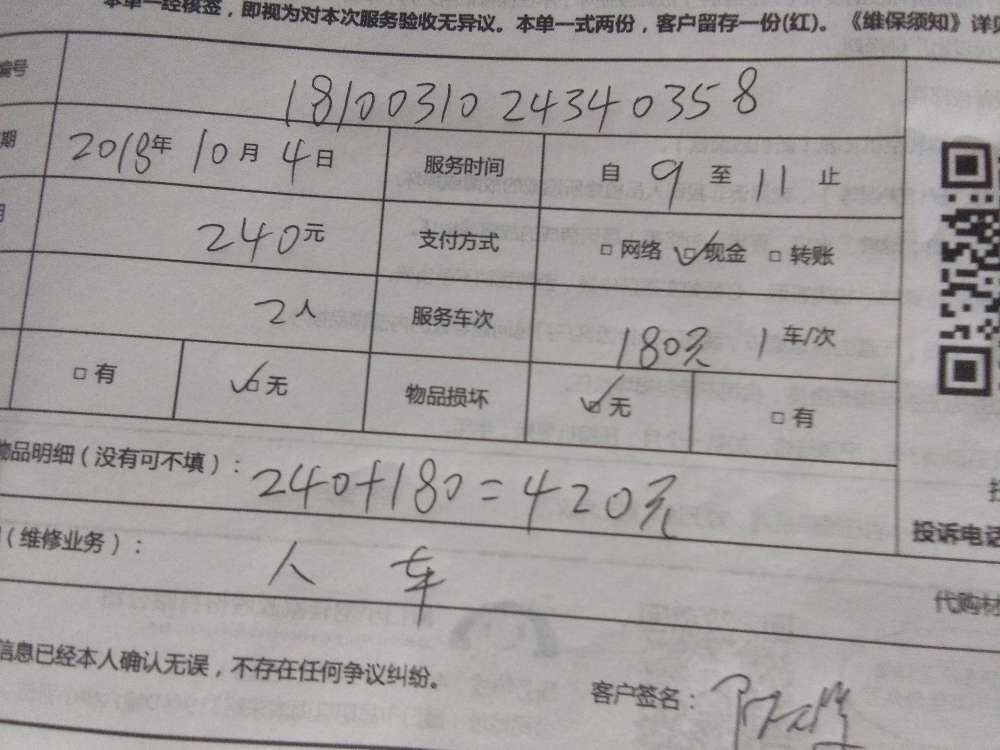 本单一经核签，即视为对本次服务验收无异议。本单一式两份，客户留存一份(红)。《维保须知》详见
编号 1810031024340358
期 2018年 10月 4日 服务时间 自 9 至 11 止
240元 支付方式 □ 网络 ☑ 现金 □ 转账
2人 服务车次 180元 1车/次
□ 有 ☑ 无 物品损坏 ☑ 无 □ 有
物品明细（没有可不填）： 240+180=420元
投诉电话
（维修业务）： 人 车
代购材
信息已经本人确认无误，不存在任何争议纠纷。
客户签名：